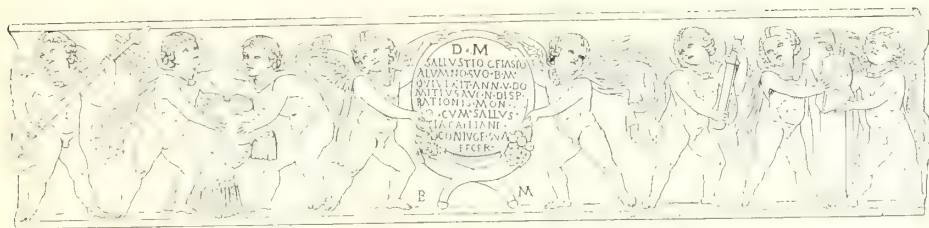 D · M
SALLVSTIO · C
ALVMNO SVO · B · M
QVI VIXIT · ANN · V · DO
MITIVS AVG · N · DISP
RATIONIS · MON
CVM · SALLVS
CONIVGE
FECER ·
B M